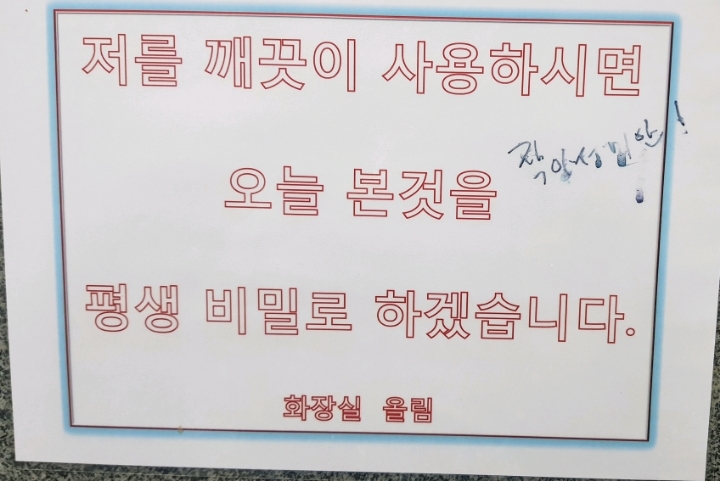 저를 깨끗이 사용하시면
오늘 본것을
평생 비밀로 하겠습니다.
화장실 올림